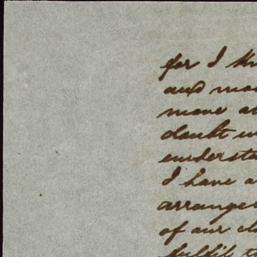 for I kn
and mo
move a
doubt
understa
I have a
arrange
of our cl
fulfil